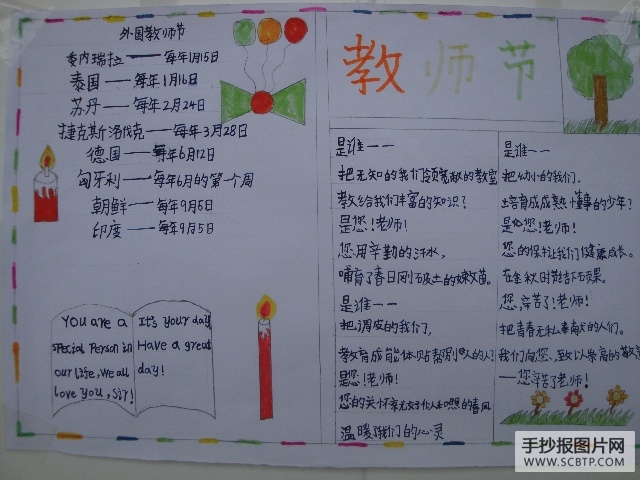 外国教师节
委内瑞拉——每年1月15日
泰国——每年1月16日
苏丹——每年2月24日
捷克斯洛伐克——每年3月28日
德国——每年6月12日
匈牙利——每年6月的第一个周
朝鲜——每年9月5日
印度——每年9月5日
You are a
special Person in
our life, We all
love You, Sir!
It's your day
Have a great
day!
教师节
是谁——
把无知的我们领
教给我们丰富的知识?
是您!老师!
您用辛勤的汗水,
哺育了春日刚破土的嫩苗。
是谁——
把调皮的我们,
教育成能体贴帮别人的人?
是您!老师!
您的关怀
温暖了我们的心灵
是谁——
把幼小的我们,
培育成成熟懂事的少年?
是您!老师!
您的保护让我们健康成长。
在金秋时结下硕果。
您,辛苦了!老师!
把青春无私奉献的人们。
我们向您,致以崇高的敬意
——您辛苦了老师!
手抄报图片网
WWW.SCBTP.COM